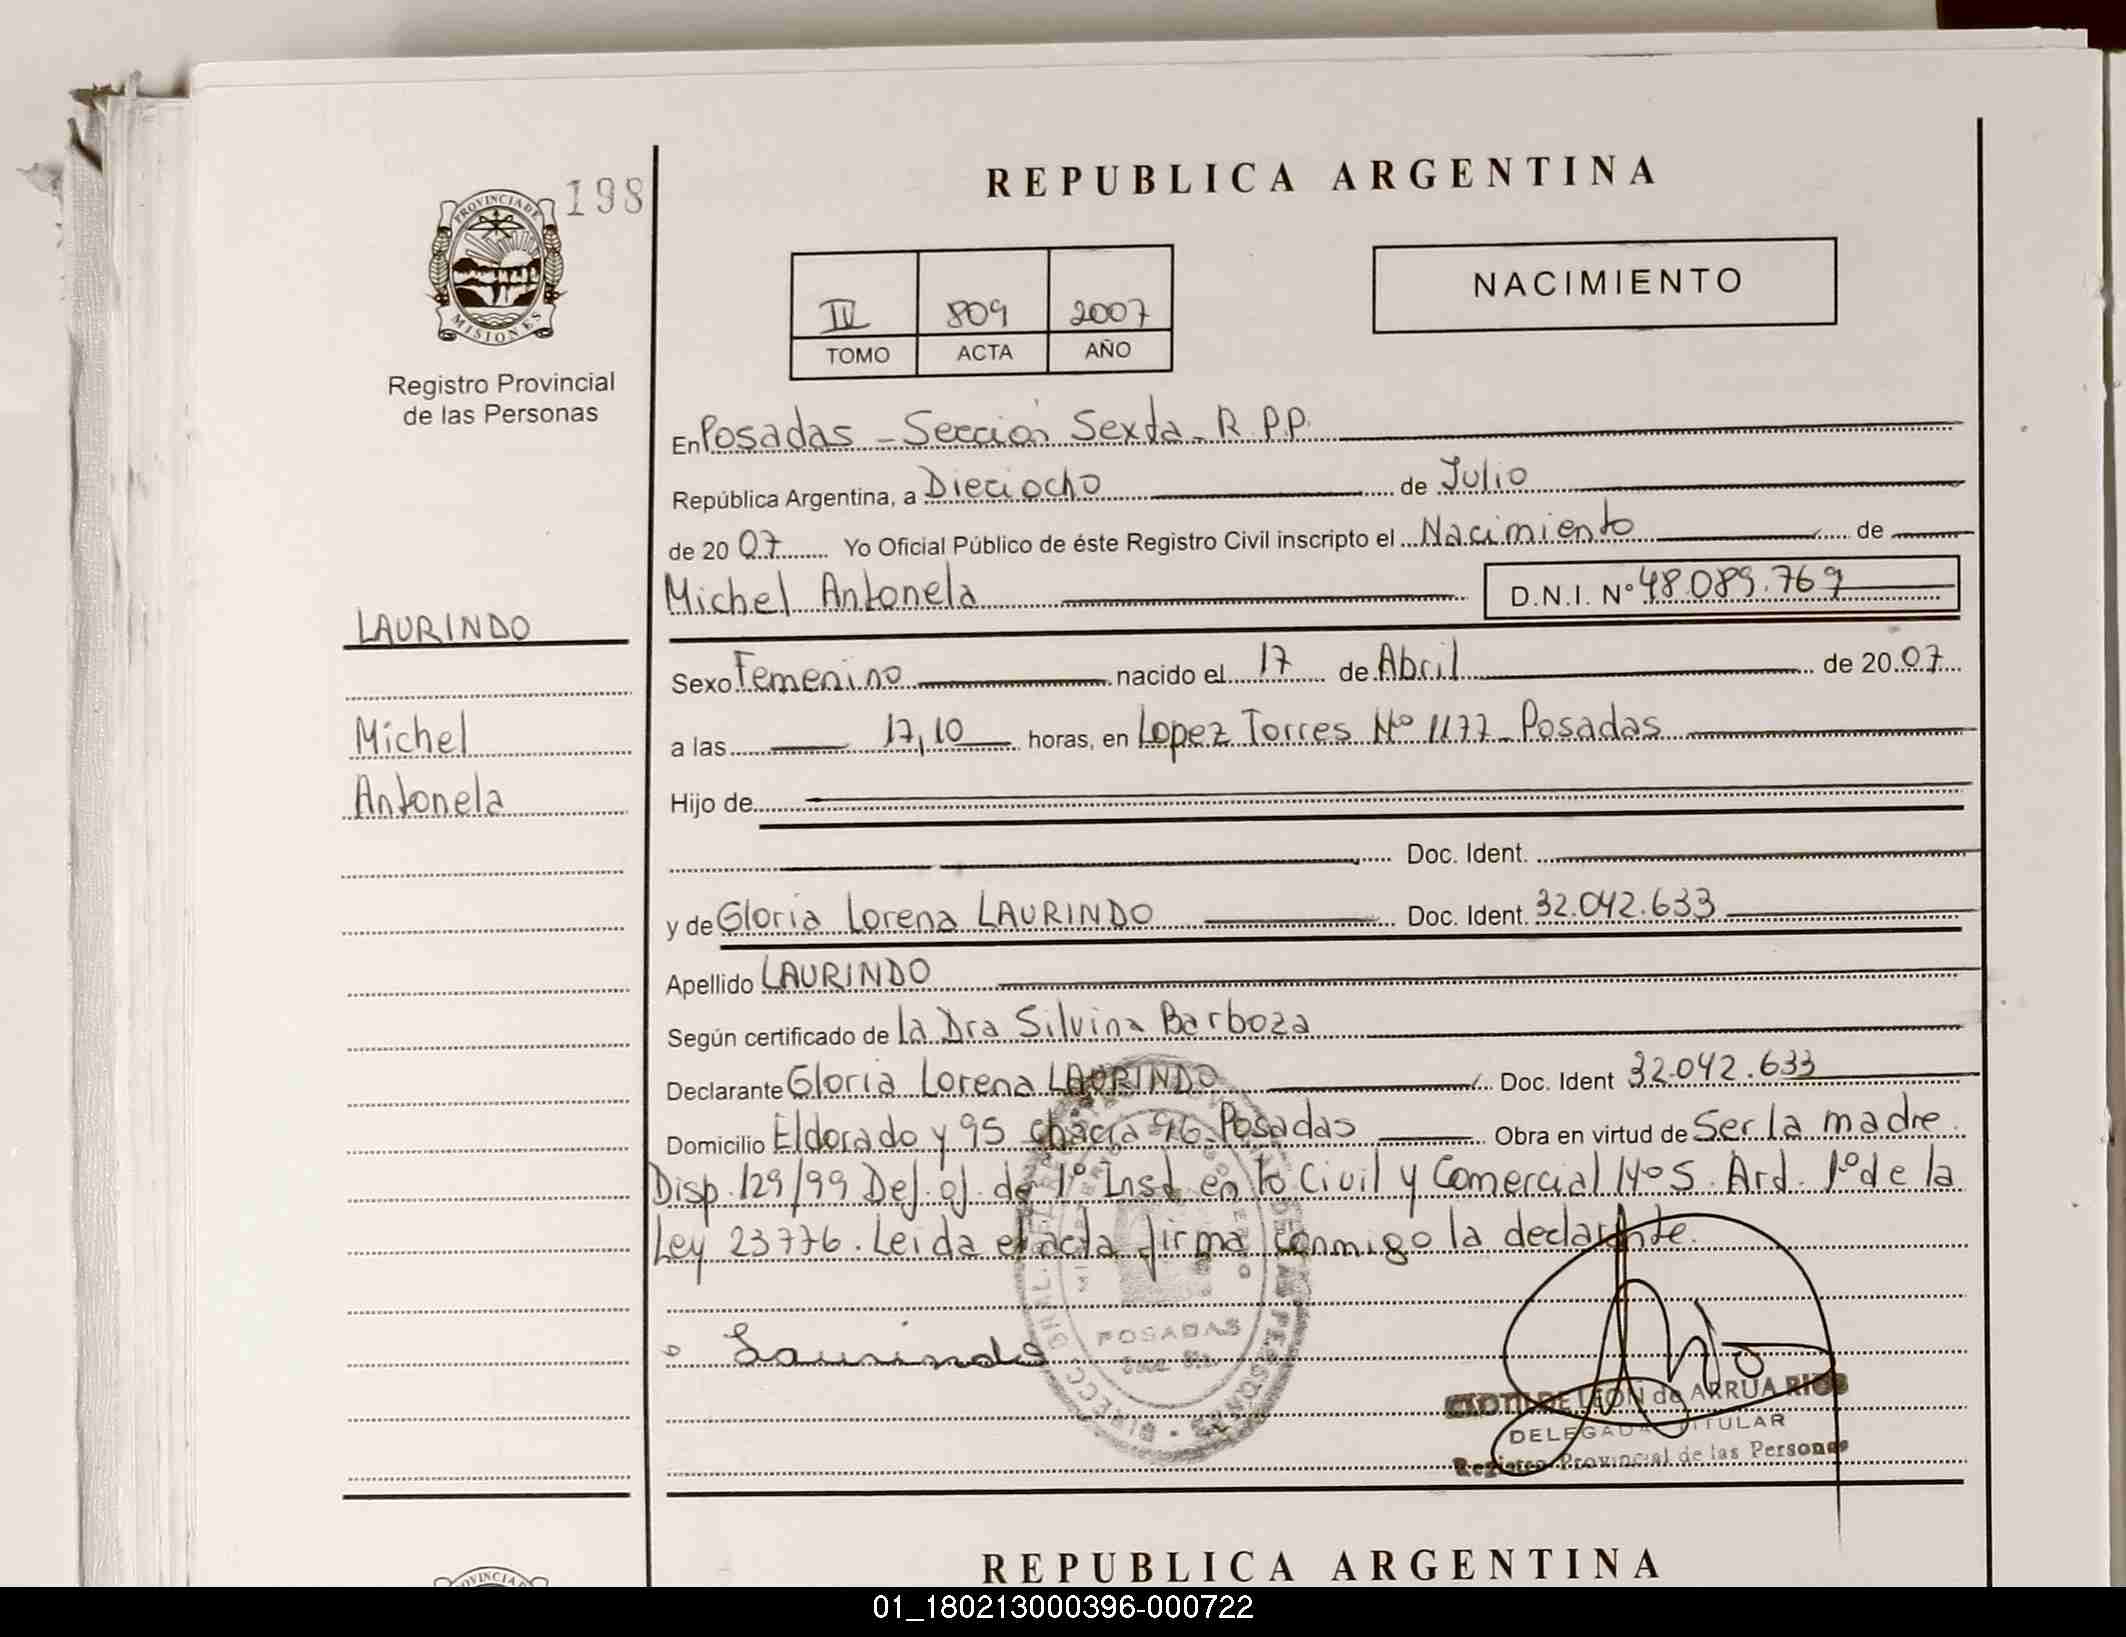 198
PROVINCIA DE
MISIONES
Registro Provincial
de las Personas
REPUBLICA ARGENTINA
IV 809 2007
TOMO ACTA AÑO
NACIMIENTO
En Posadas - Sección Sexta - R.P.P.
República Argentina, a Dieciocho de Julio
de 2007 Yo Oficial Público de éste Registro Civil inscripto el Nacimiento de
Michel Antonela D.N.I. Nº 48.089.769
LAURINDO
Michel
Antonela
Sexo Femenino nacido el 17 de Abril de 2007
a las 17,10 horas, en Lopez Torres Nº 1177 - Posadas
Hijo de
Doc. Ident.
y de Gloria Lorena LAURINDO Doc. Ident. 32.042.633
Apellido LAURINDO
Según certificado de la Dra Silvina Barboza
Declarante Gloria Lorena LAURINDO Doc. Ident 32.042.633
Domicilio Eldorado y 95 chacra 96 - Posadas Obra en virtud de Ser la madre.
Disp. 129/99 Def. of. de 1º Inst en lo Civil y Comercial Nº 5. Art. 1º de la
Ley 23776. Leida el acta firma conmigo la declarante.
Laurindo
POSADAS
CLOTILDE LEON de ARRUA RIOS
DELEGADA TITULAR
Registro Provincial de las Personas
REPUBLICA ARGENTINA
01_180213000396-000722